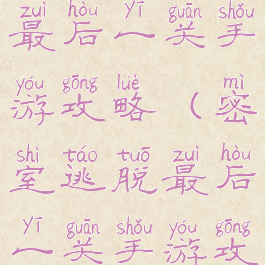 zuì hòu yī guān shǒu
最后一关手
yóu gōng lüè mì
游攻略（密
shì táo tuō zuì hòu
室逃脱最后
yī guān shǒu yóu gōng
一关手游攻